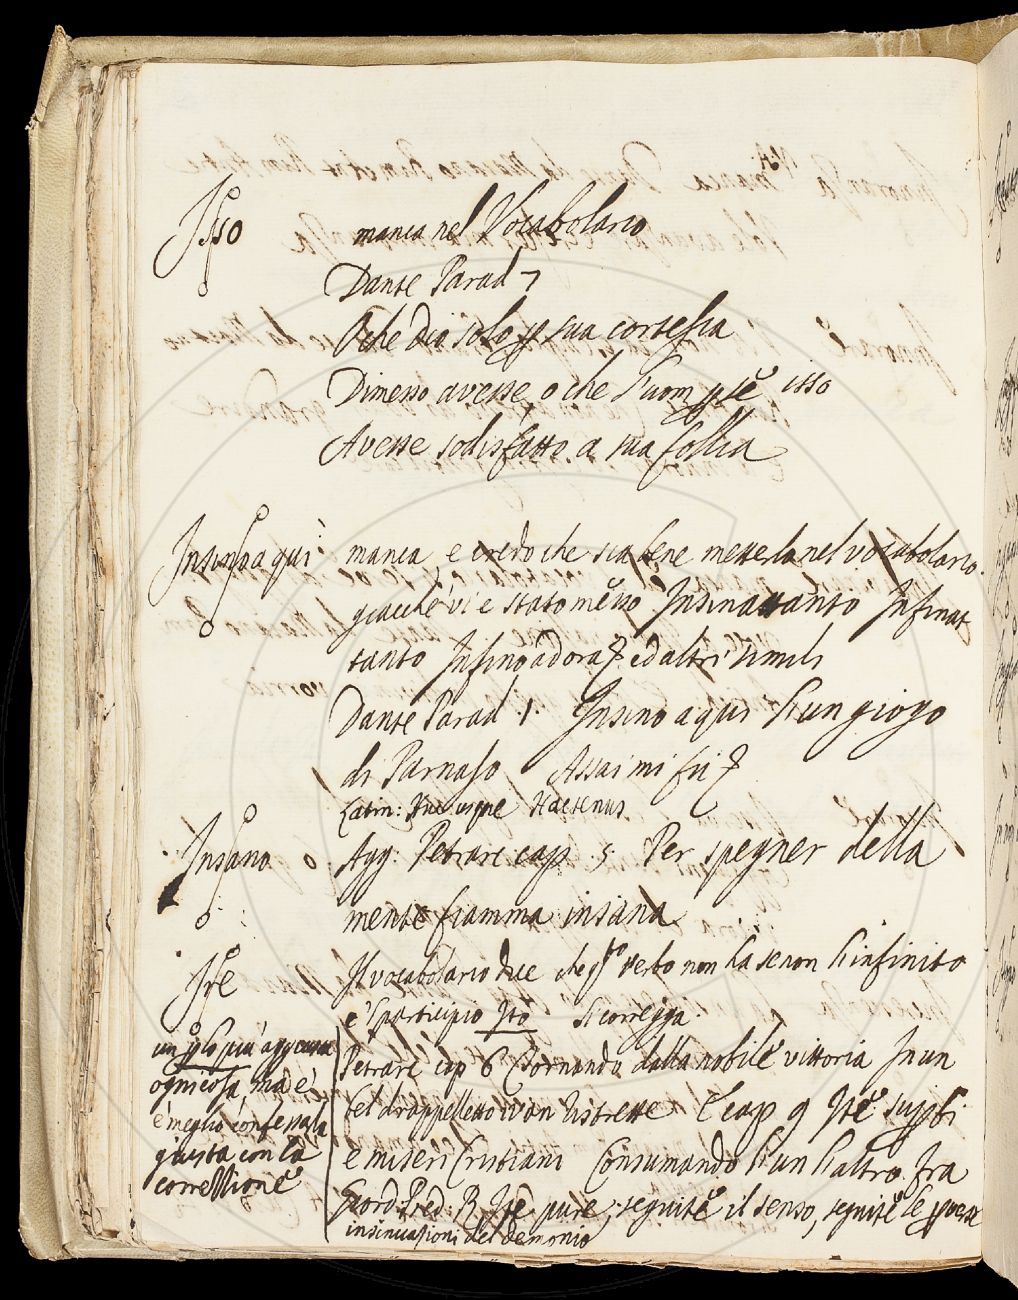 Isso manca nel Vocabolario
Dante Parad 7
O che Dio solo p sua cortesia
Dimesso avesse, o che l'uom p se isso
Avesse sodisfatto a sua follia
Insino a qui manca, e credo che sia bene metterlo nel vocabolario.
giacche vi e stato messo Insinattanto Infinat
tanto Infino adora ed altri simili
Dante Parad. 1. Insino a qui l'un giogo
di Parnaso Assai mi fu
Latin: Huc usque Hactenus.
Insano Agg. Petrarc cap. 5 Per spegner della
mente fiamma insana
Ire Il vocabolario dice che qsto verbo non ha se non l'infinito
e 'l participio Ito Si corregga.
Petrarc cap 6 Tornando dalla nobile vittoria In un
bel drappelletto ivan ristrette E cap 9 Ite suppbi
e miseri Cristiani Consumando l'un l'altro. Fra
Giord: Pred: R. Ite pure, seguite il senso, seguite le pverse
insinuazioni del demonio
un plo piu
ogni cosa, ma e
e meglio confessarla
giusta con la
correzzione